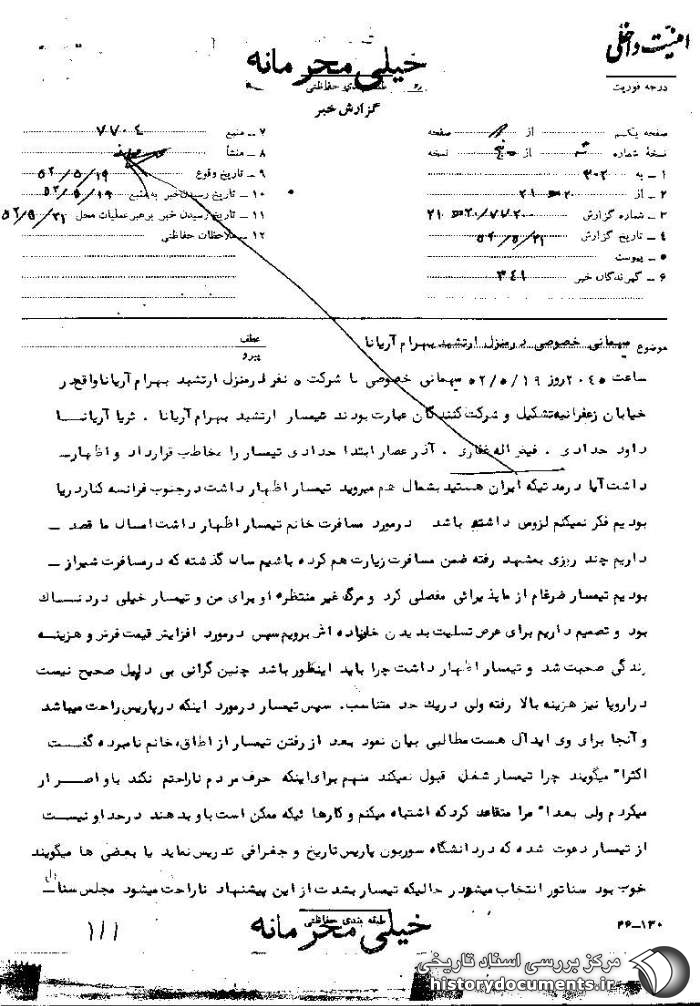 امنیت داخلی
خیلی محرمانه
درجه فوریت
طبقه بندی حفاظتی
گزارش خبر
صفحه یکم از صفحه
نسخهٔ شماره از نسخه
۱ ـ به ۳۰۲
۲ ـ از ۲۰ ۲۱
۳ ـ شماره گزارش ۲۰/۷۷۲۰ ۲۱
۴ ـ تاریخ گزارش ۵۲/۵/۲۱
۵ ـ پیوست
۶ ـ گیرندگان خبر ۳۴۱
۷ ـ منبع ۷۷۰۴
۸ ـ منشأ
۹ ـ تاریخ وقوع ۵۲/۵/۱۹
۱۰ ـ تاریخ رسیدن خبر به منبع ۵۲/۵/۱۹
۱۱ ـ تاریخ رسیدن خبر برهبر عملیات محل ۵۲/۵/۲۱
۱۲ ـ ملاحظات حفاظتی
موضوع میهمانی خصوصی در منزل ارتشبد بهرام آریانا
عطف
پیرو
ساعت ۲۰۴۵ روز ۵۲/۵/۱۹ میهمانی خصوصی با شرکت ۵ نفر در منزل ارتشبد بهرام آریانا واقع در
خیابان زعفرانیه تشکیل و شرکت کنندگان عبارت بودند تیمسار ارتشبد بهرام آریانا . ثریا آریانا
داود حدادی . فیض اله غفاری . آذر عصار ابتدا حدادی تیمسار را مخاطب قرار داد و اظهار ـ
داشت آیا در مدتیکه ایران هستید بشمال هم میروید تیمسار اظهار داشت در جنوب فرانسه کنار دریا
بودیم فکر نمیکنم لزومی داشته باشد در مورد مسافرت خانم تیمسار اظهار داشت امسال ما قصد ـ
داریم چند روزی بمشهد رفته ضمن مسافرت زیارت هم کرده باشیم سال گذشته که در مسافرت شیراز ـ
بودیم تیمسار ضرغام از ما پذیرائی مفصلی کرد و مرگ غیر منتظره او برای من و تیمسار خیلی دردناک
بود و تصمیم داریم برای عرض تسلیت بدیدن خانواده اش برویم سپس در مورد افزایش قیمت فرش و هزینه
زندگی صحبت شد و تیمسار اظهار داشت چرا باید اینطور باشد چنین گرانی بی دلیل صحیح نیست
در اروپا نیز هزینه بالا رفته ولی در یک حد متناسب. سپس تیمسار در مورد اینکه در پاریس راحت میباشد
و آنجا برای وی ایدآل هست مطالبی بیان نمود بعد از رفتن تیمسار از اطاق، خانم نامبرده گفت
اکثرا" میگویند چرا تیمسار شغلی قبول نمیکند منهم برای اینکه حرف مردم ناراحتم نکند باو اصرار
میکردم ولی بعدا" مرا متقاعد کرد که اشتباه میکنم و کارهائیکه ممکن است باو بدهند در حد او نیست
از تیمسار دعوت شده که در دانشگاه سوربون پاریس تاریخ و جغرافی تدریس نماید یا بعضی ها میگویند
خوب بود سناتور انتخاب میشد در حالیکه تیمسار بشدت از این پیشنهاد ناراحت میشود مجلس سنا
طبقه بندی حفاظتی
خیلی محرمانه
۱۳۰ـ۲۶
۱/۱
مرکز بررسی اسناد تاریخی
historydocuments.ir